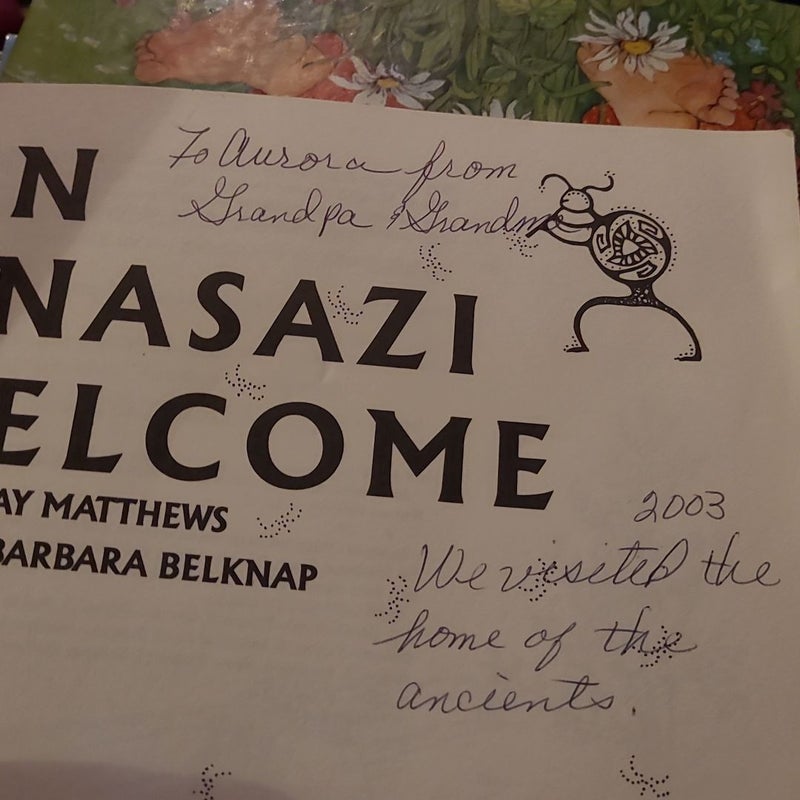 To Aurora from
Grandpa & Grandma
N
NASAZI
ELCOME
AY MATTHEWS
BARBARA BELKNAP
2003
We visited the
home of the
ancients.